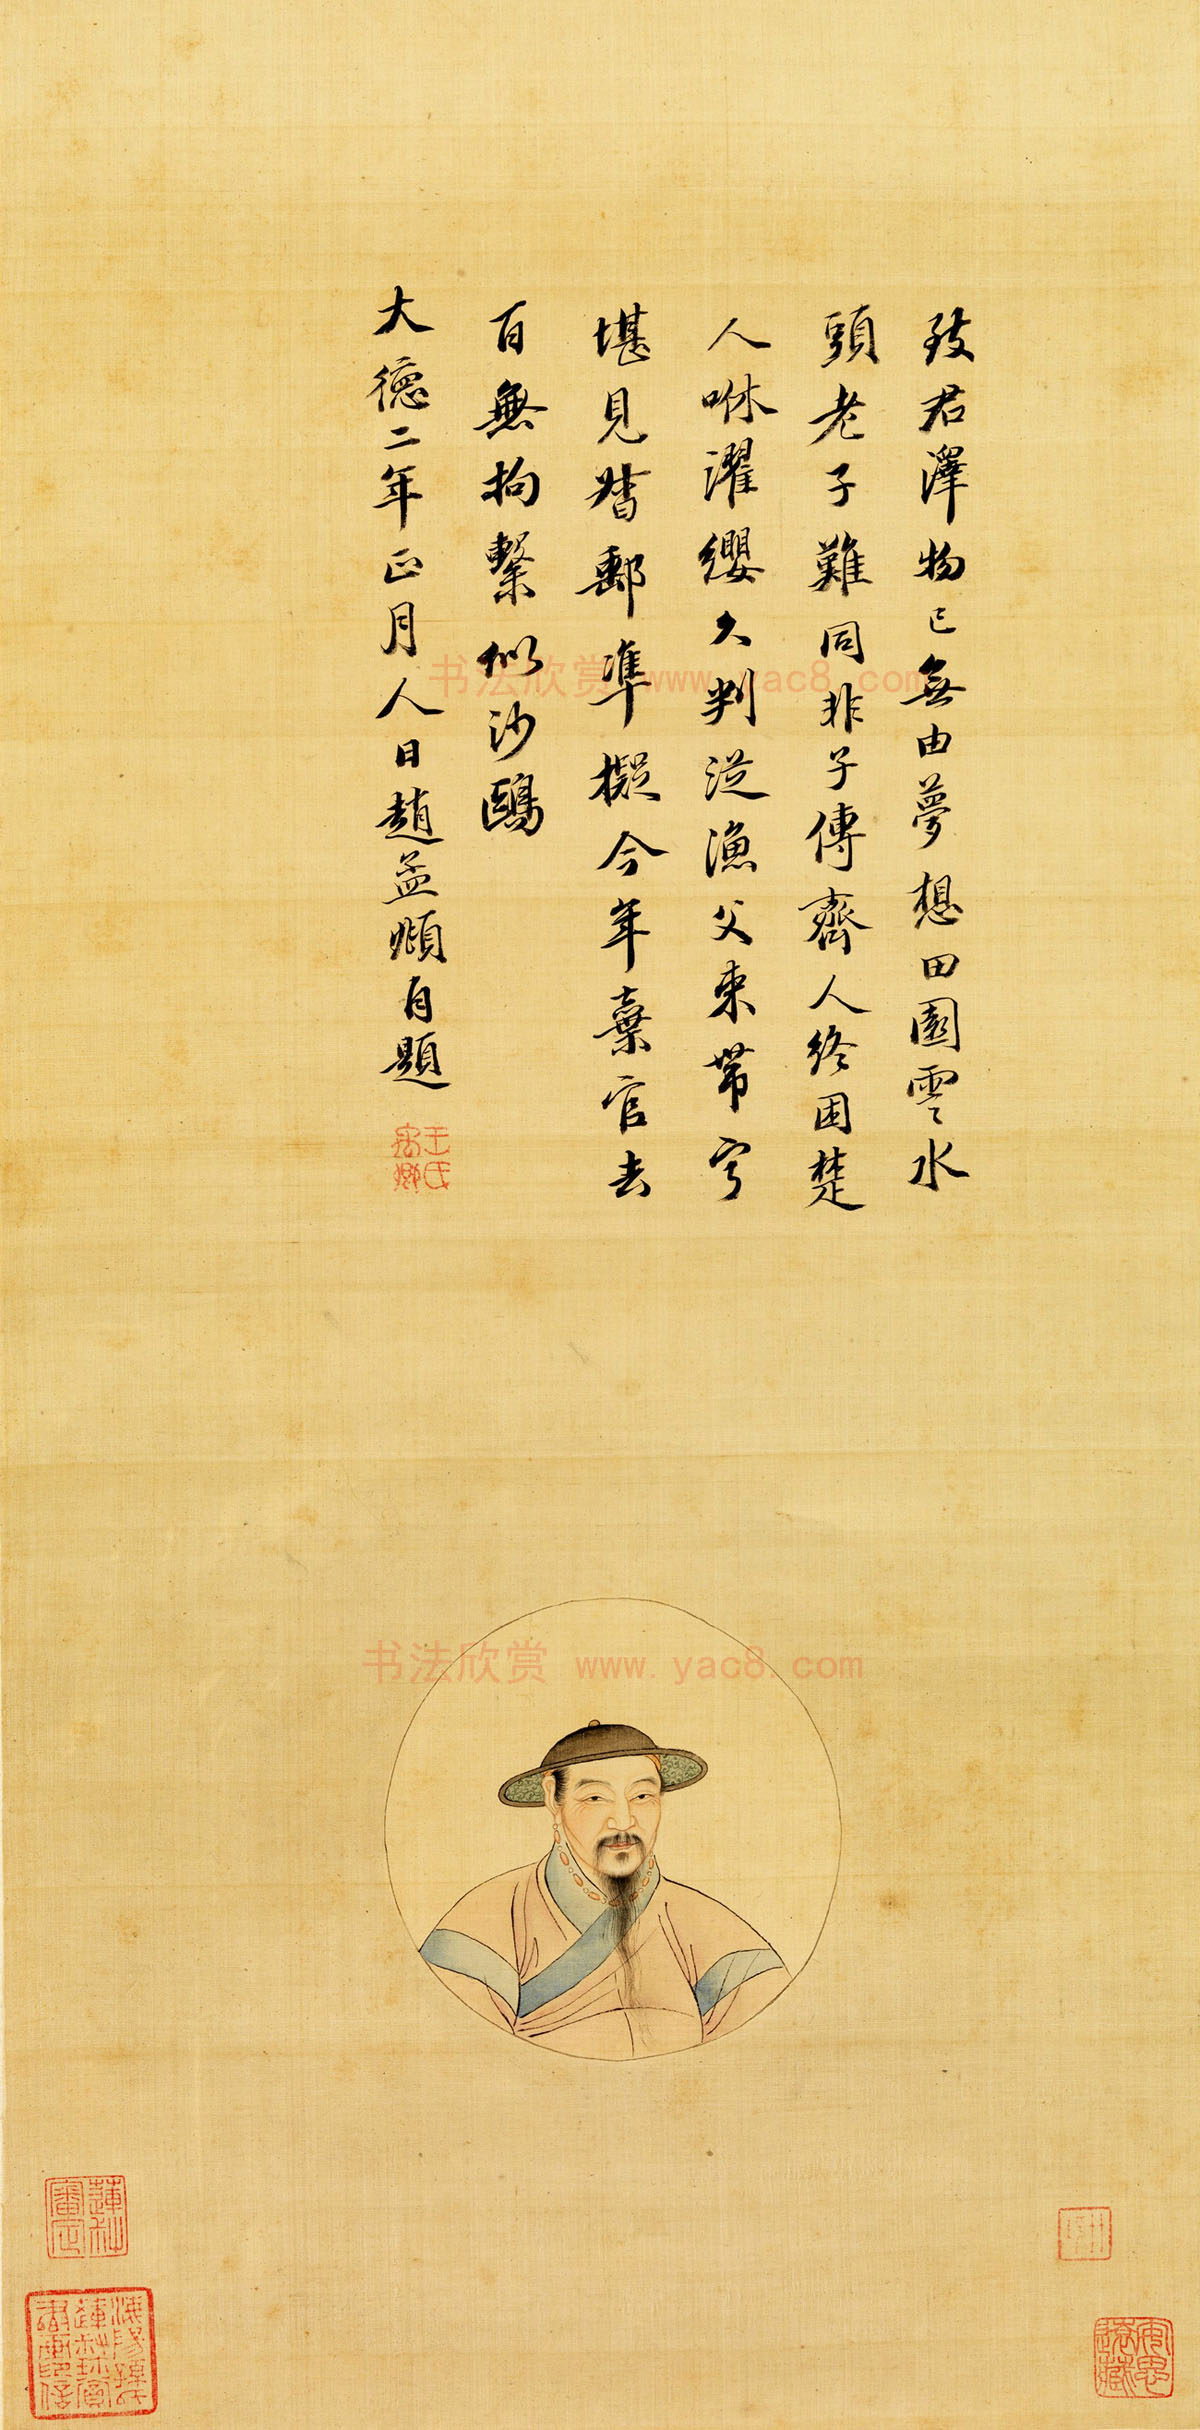 致君澤物已無由夢想田園雲水
頭老子難同非子傳齊人終困楚
人咻濯纓久判從漁父束帶寧
堪見督郵準擬今年棄官去
百無拘繫似沙鷗
大德二年正月人日趙孟頫自題
王氏
禹卿
书法欣赏 www.yac8.com
书法欣赏 www.yac8.com
蓮樵
審定
安思
遠藏